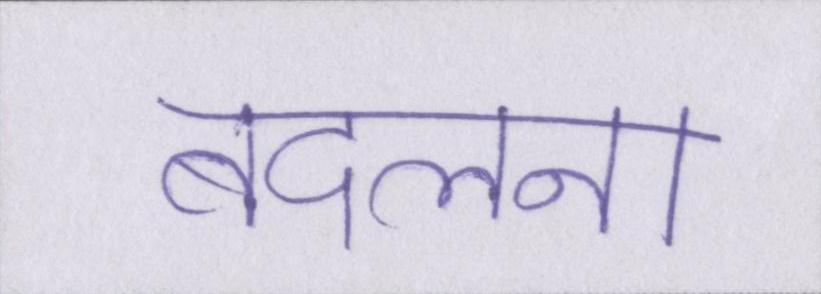 बदलना